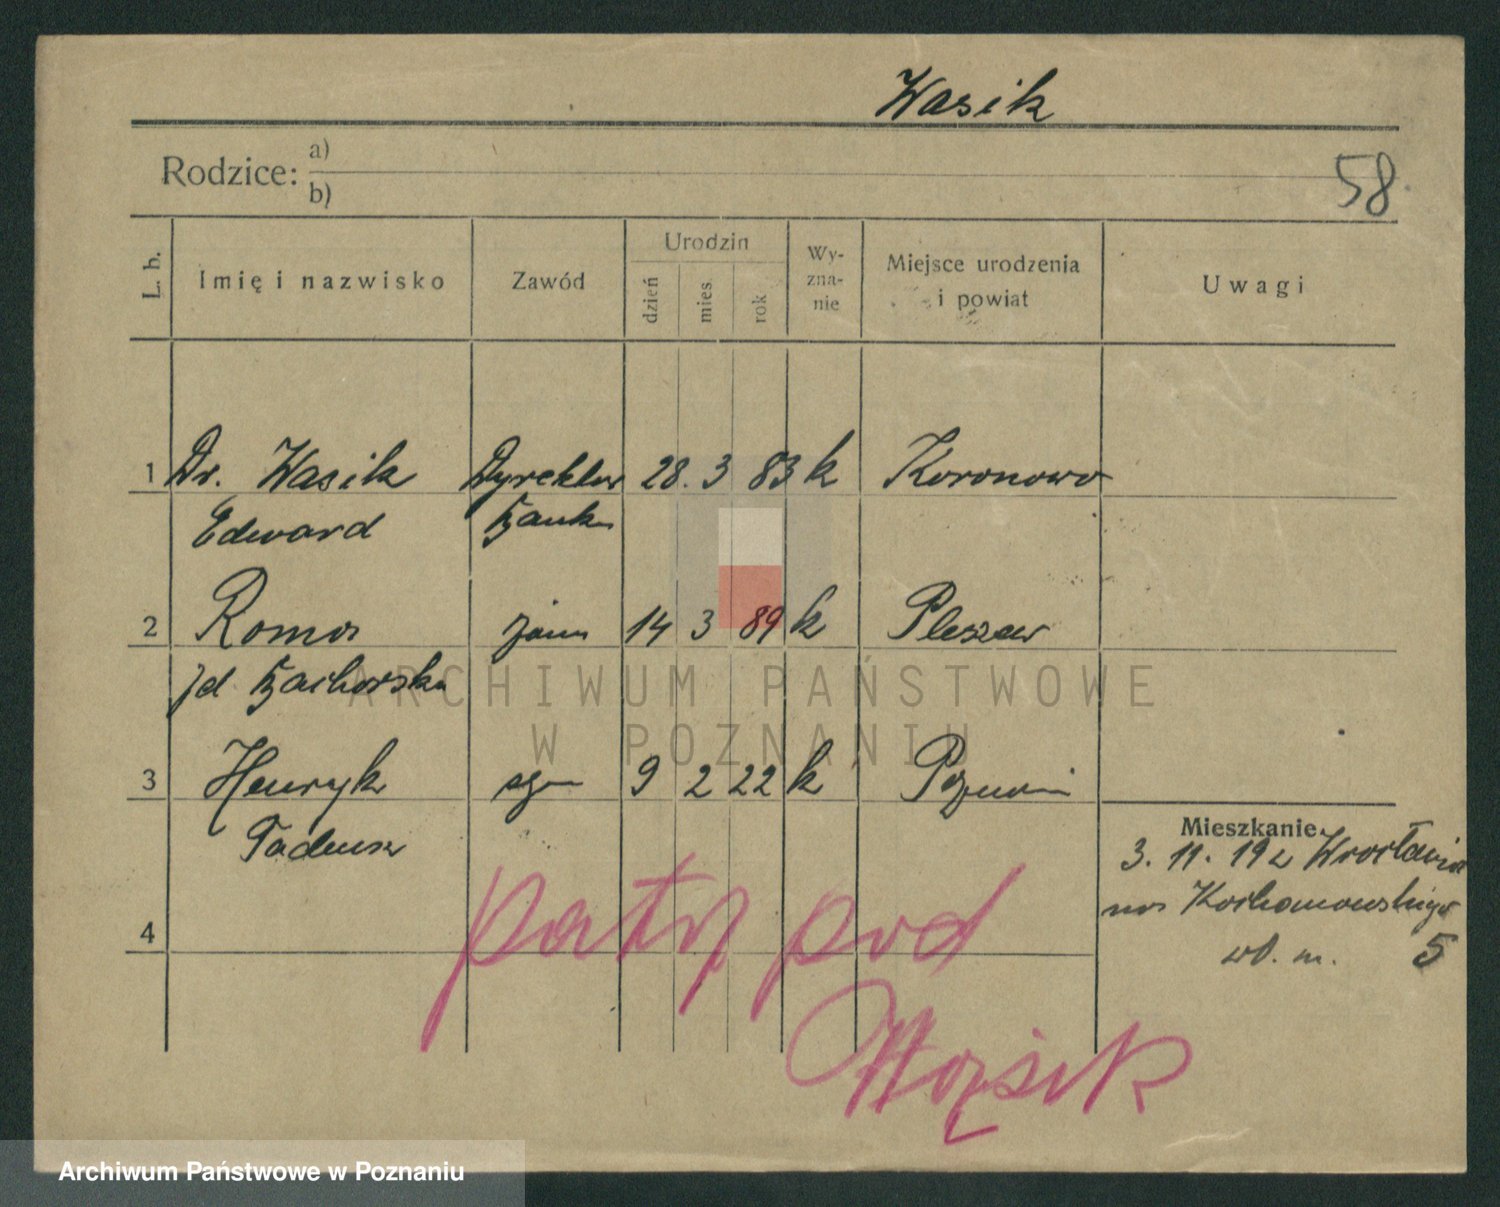 Wasik
Rodzice: a)
b)
58
L. b.
Imię i nazwisko
Zawód
Urodzin
dzień
mies.
rok
Wy-
zna-
nie
Miejsce urodzenia
i powiat
Uwagi
1 Dr. Wasik Dyrektor 28. 3 83 k Koronowo
Edward Banku
2 Roma żona 14 3 89 k Pleszew
3 Henryk syn 9 2 22 k Poznań
Tadeusz
4
Mieszkanie
3. 11. 192
Kochanowskiego
wł. m. 5
patrz pod
Wąsik
ARCHIWUM PAŃSTWOWE
W POZNANIU
Archiwum Państwowe w Poznaniu